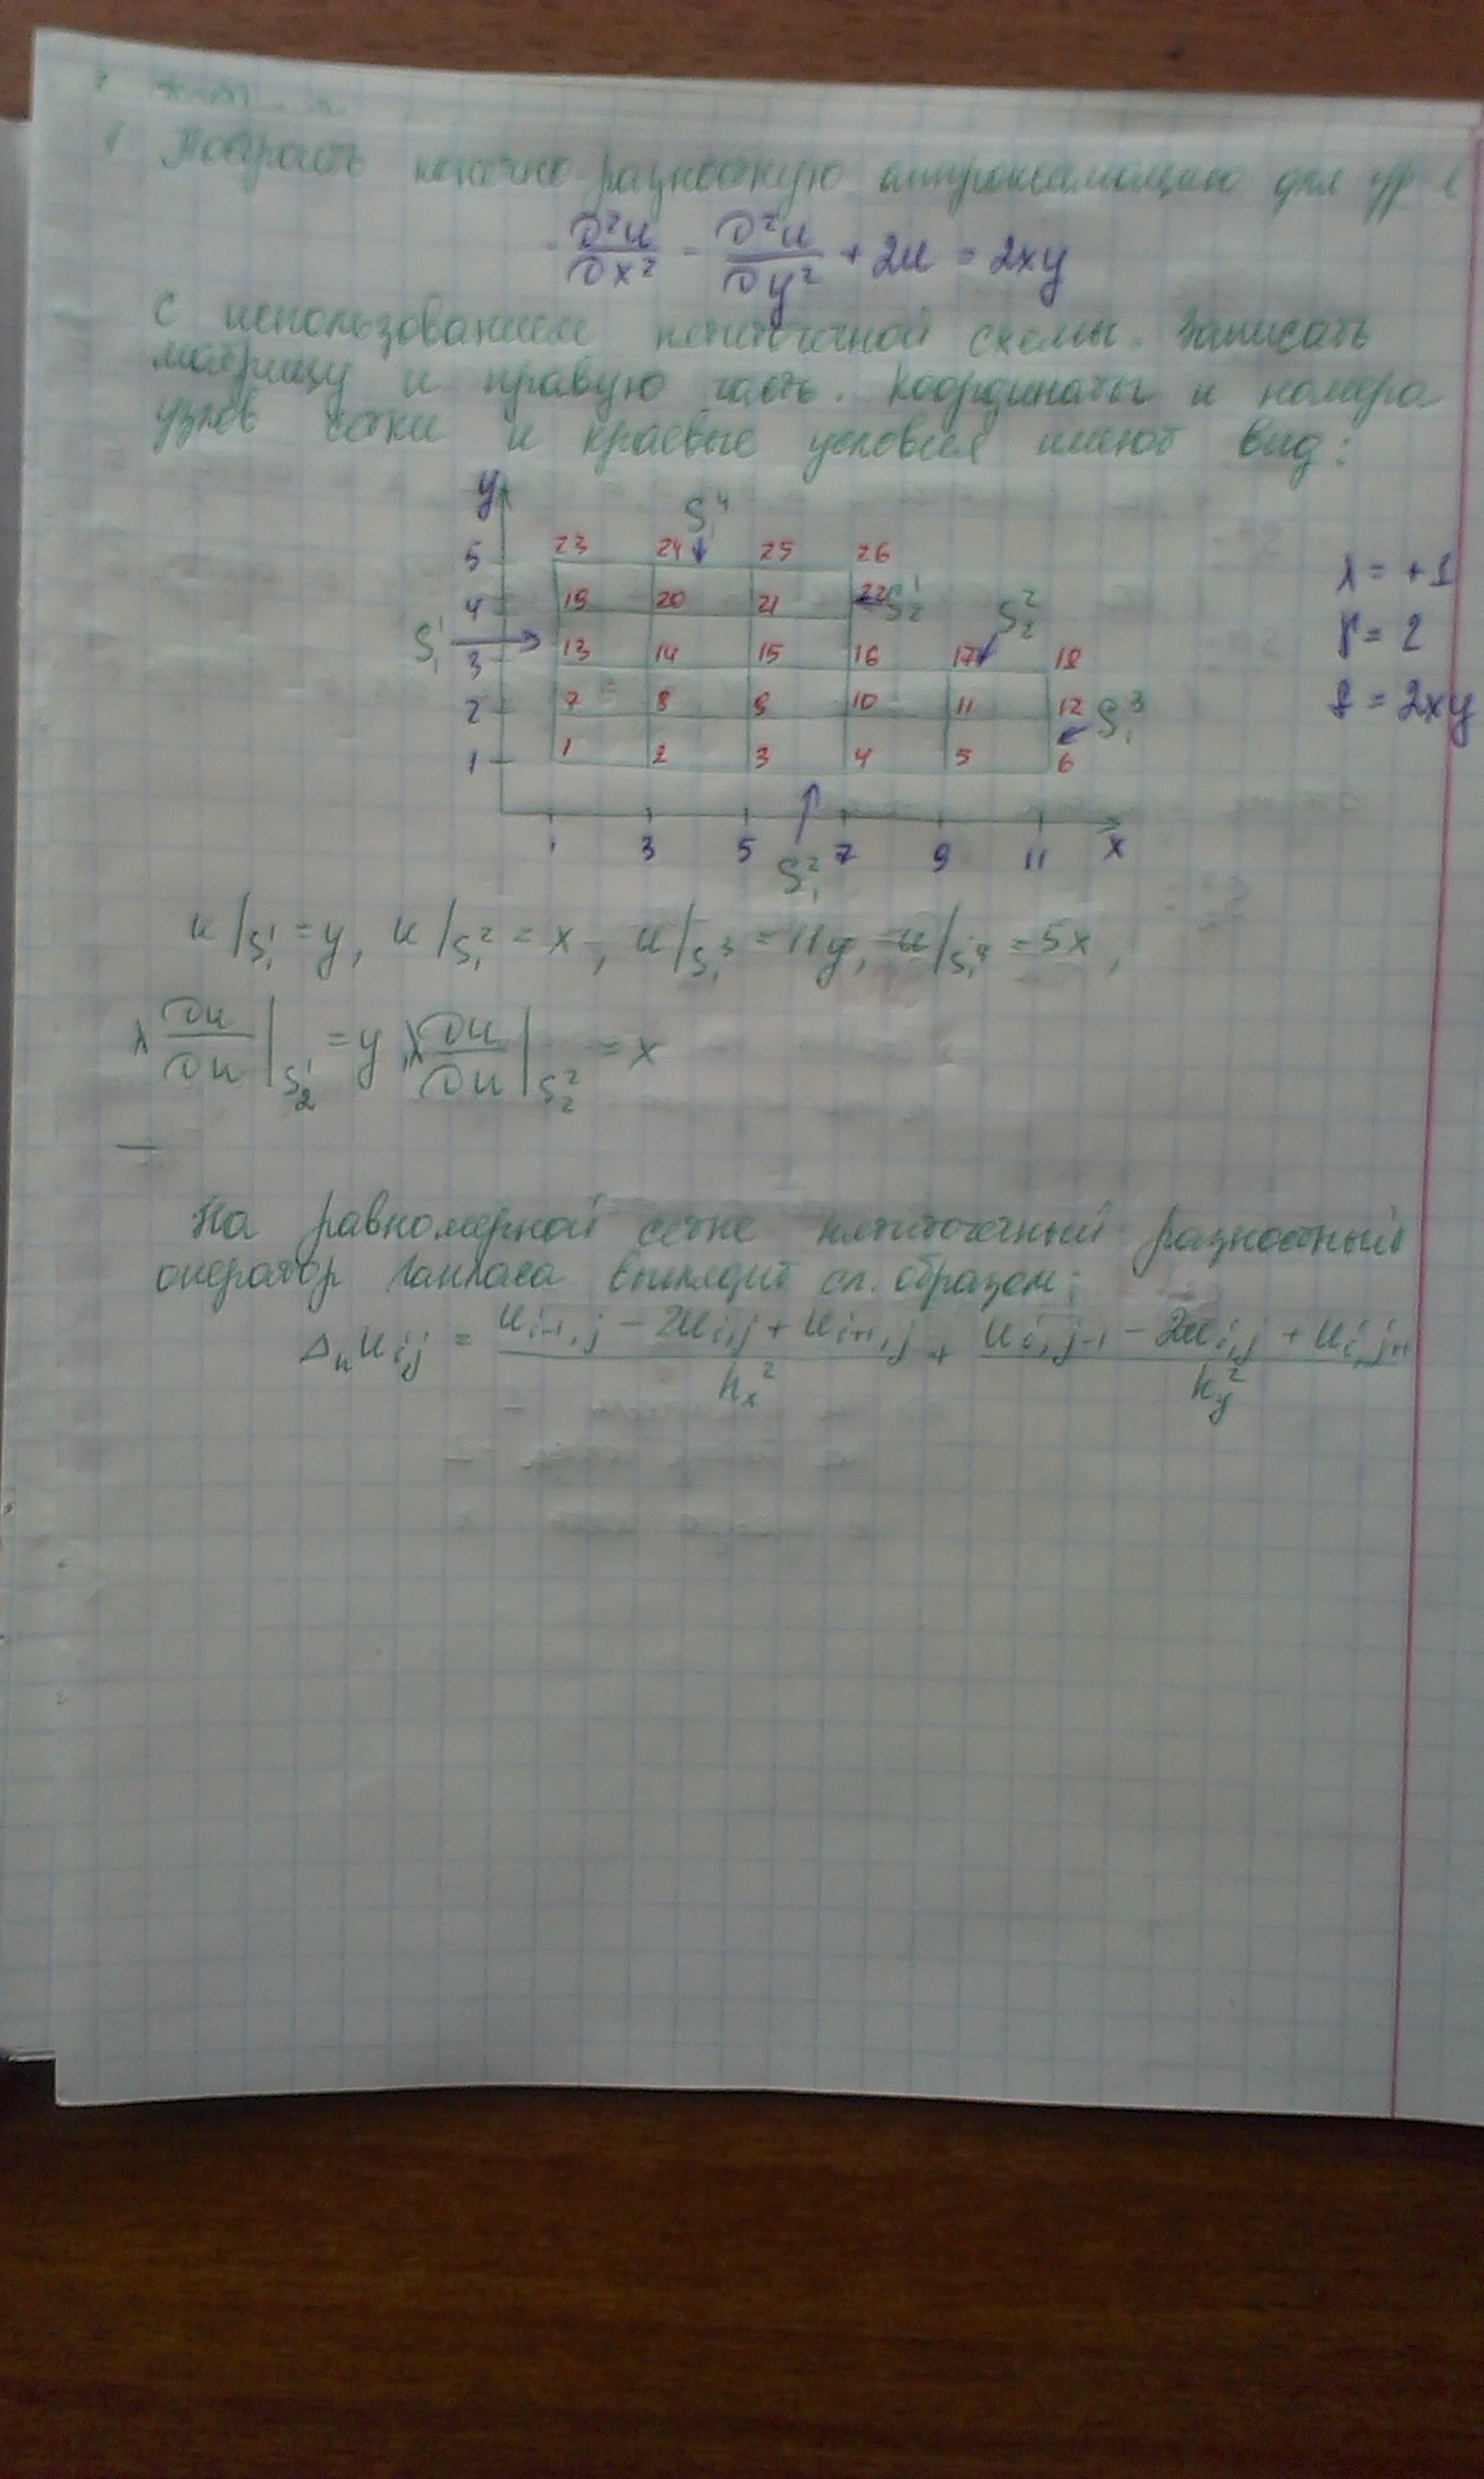 1. Построить конечно-разностную аппроксимацию для ур-
- ∂²u/∂x² - ∂²u/∂y² + 2u = 2xy
с использованием пятиточечной схемы. Записать
матрицу и правую часть. Координаты и номера
узлов сетки и краевые условия имеют вид:
y
S₁⁴
5 23 24 25 26
λ = +1
4 19 20 21 22 S₂¹ S₂²
S₁¹
3 13 14 15 16 17 18
γ = 2
2 7 8 9 10 11 12 S₁³
f = 2xy
1 1 2 3 4 5 6
1 3 5 7 9 11 x
S₁²
u/S₁¹ = y, u/S₁² = x, u/S₁³ = 11y, u/S₁⁴ = 5x,
λ ∂u/∂n |S₂¹ = y, λ ∂u/∂n |S₂² = x
На равномерной сетке пятиточечный разностный
оператор Лапласа выглядит сл. образом:
Δₕuᵢ,ⱼ = (uᵢ₋₁,ⱼ - 2uᵢ,ⱼ + uᵢ₊₁,ⱼ)/hₓ² + (uᵢ,ⱼ₋₁ - 2uᵢ,ⱼ + uᵢ,ⱼ₊₁)/h_y²